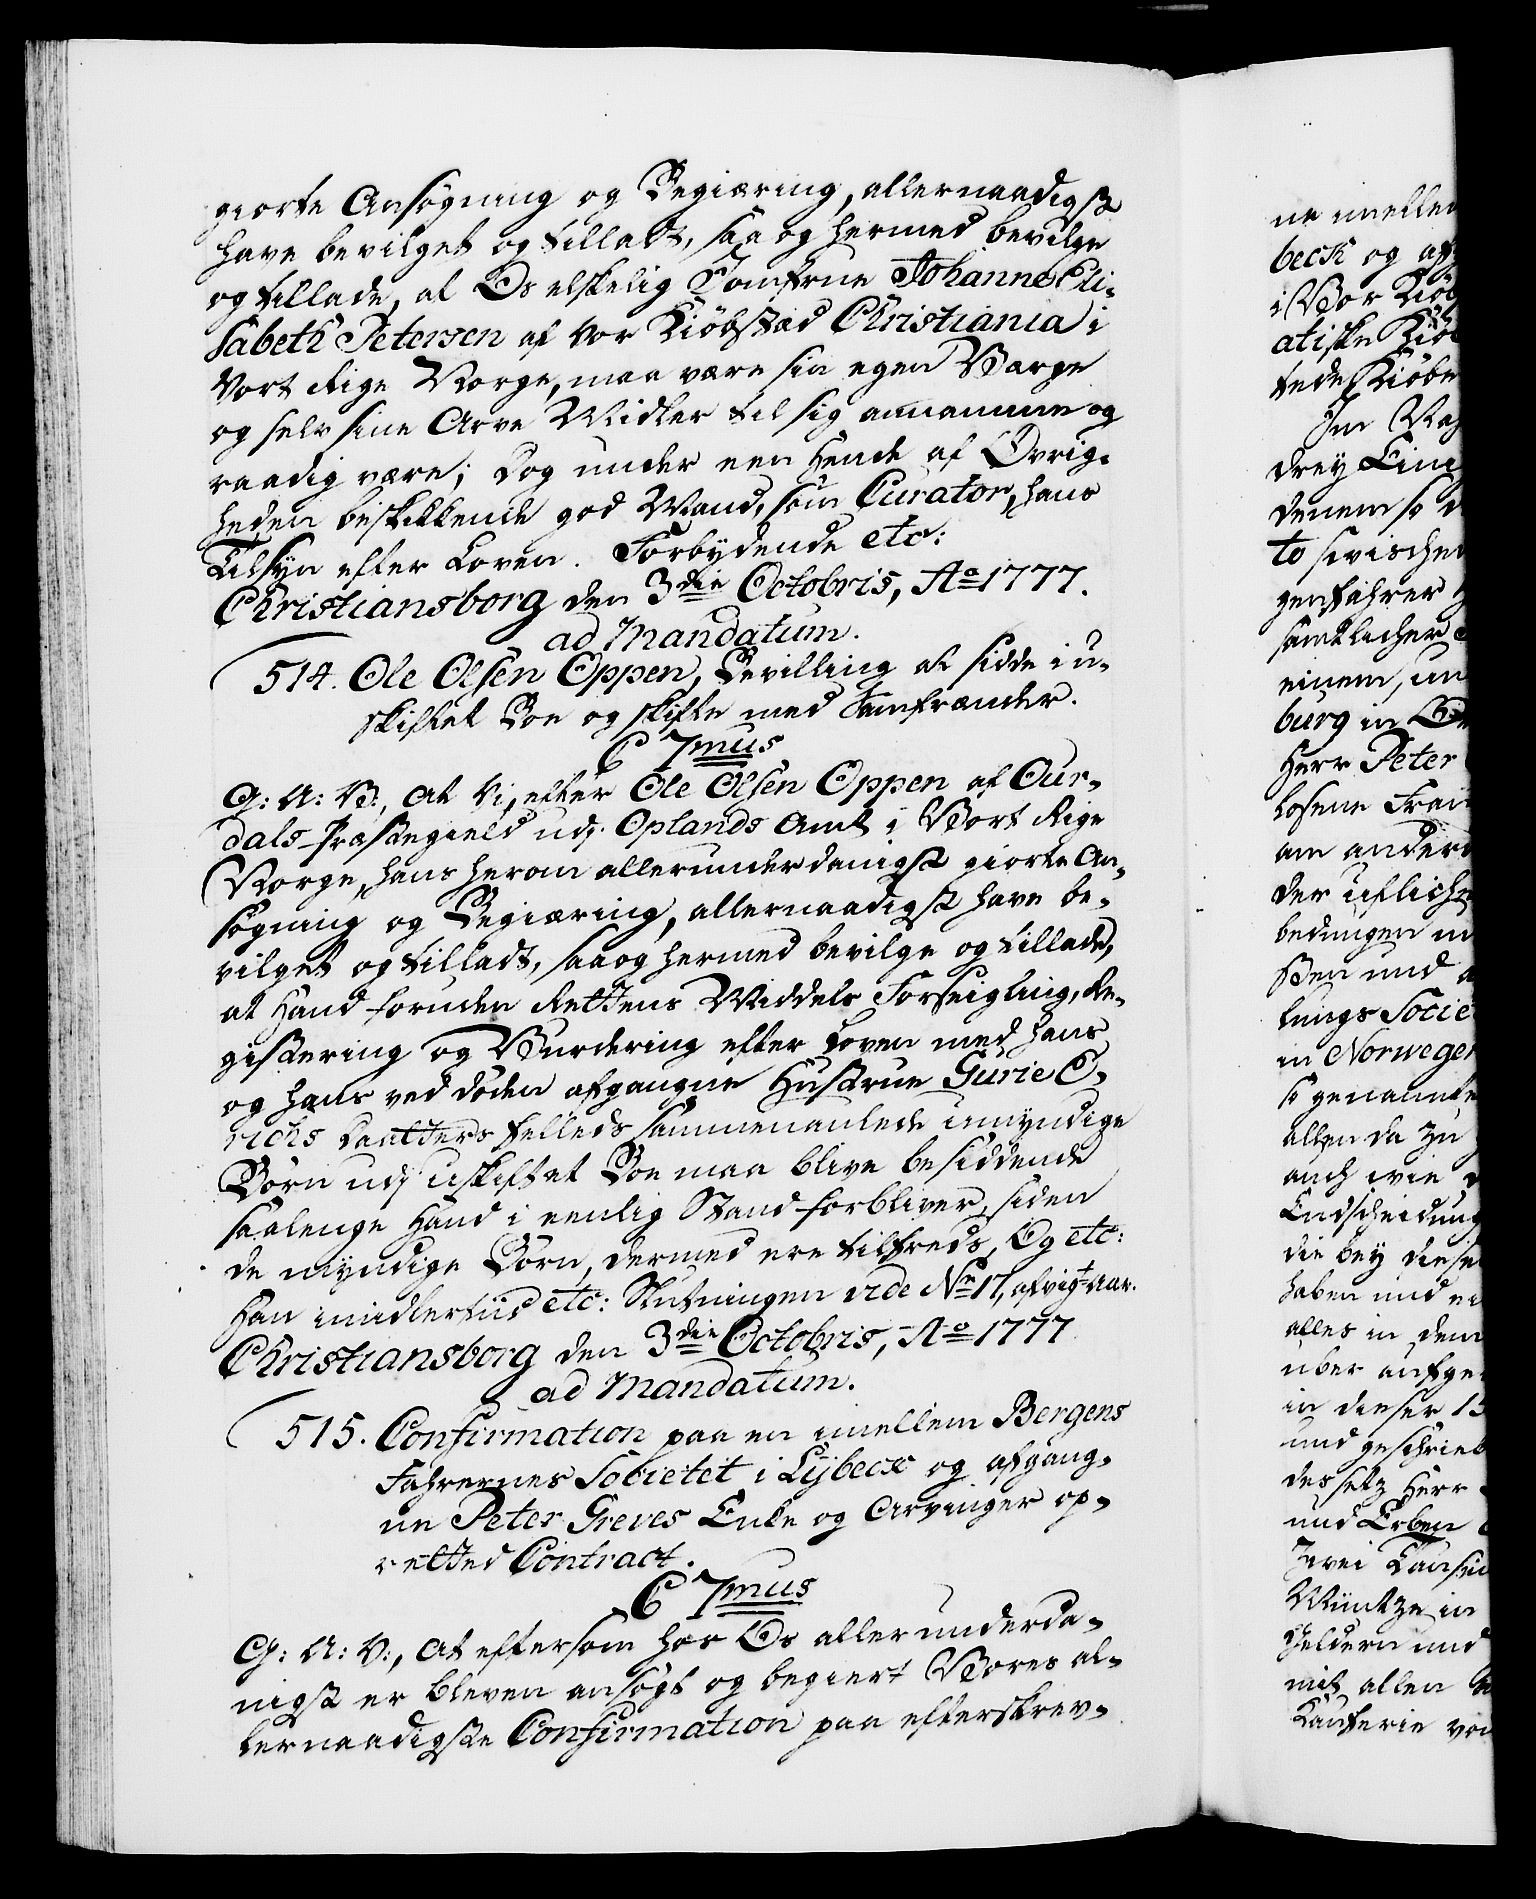 giorte Ansøgning og Begiæring, allernaadigst
have bevilget og tilladt, saa og hermed bevilge
og tillade, at Os elskelig Jomfrue Johanne Eli-
sabeth Petersen af vor Kiöbstad Christiania i
Vort Rige Norge, maa være sin egen Værge
og selv sine Arve Midler til sig annamme og
raadig være; dog under een Hende af Øvrig-
heden beskikkende god Mand, som Curator, hans
Tilsyn efter Loven. Forbydende etc:
Christiansborg den 3die Octobris, Ao 1777.
ad Mandatum.
514. Ole Olsen Oppen, Bevilling at sidde i u-
skiftet Boe og skifte med Samfrænder.
C 7mus
G: A: V:, at Vi, efter Ole Olsen Oppen af Our-
dals Præstegield udj Oplands Amt i Vort Rige
Norge, hans herom allerunderdanigst giorte An-
søgning og Begiæring, allernaadigst have be-
vilget og tilladt, saa og hermed bevilge og tillade,
at Hand foruden Rettens Middels Forseigling, Re-
gistering og Vurdering efter Loven med hans
og hans ved døden afgangne Hustrue Gurie E-
richs Daatters fælleds sammenaulede umyndige
Børn udj uskiftet Boe maa blive besiddende
saalenge Hand i eenlig Stand forbliver, siden
de myndige Børn, dermed ere tilfreds, Og etc:
Han imidlertiid etc: Slutningen vide No 17, afvigt Aar.
Christiansborg den 3die Octobris, Ao 1777
ad Mandatum.
515. Confirmation paa en imellem Bergens
Fahrernes Societet i Lybeck og afgang-
ne Peter Greves Enke og Arvinger op-
retted Contract.
C 7mus
G: A: V:, at eftersom hos Os allerunderda-
nigst er bleven ansøgt og begiert Vores al-
lernaadigste Confirmation paa efterskrev-
ne imellem
beck og af
i Vor Kiöb
atiske Kiö
tede Kiöb
Im
drey Eini
denem so
to swischen
genfahrer
samtlicher
einem, un
burg in
Herr Peter
losene Frau
am andern
der
bedungen
Ben und
lungs Societ
in Norwegen
so genannte
allen da zu
auch wie
Endscheidung
die bey diese
haben und
alles in dem
uber
in dieser 15
und geschrieb
des Herr
und Erben
Zwei
Müntze in
Geldern und
mit allen
von